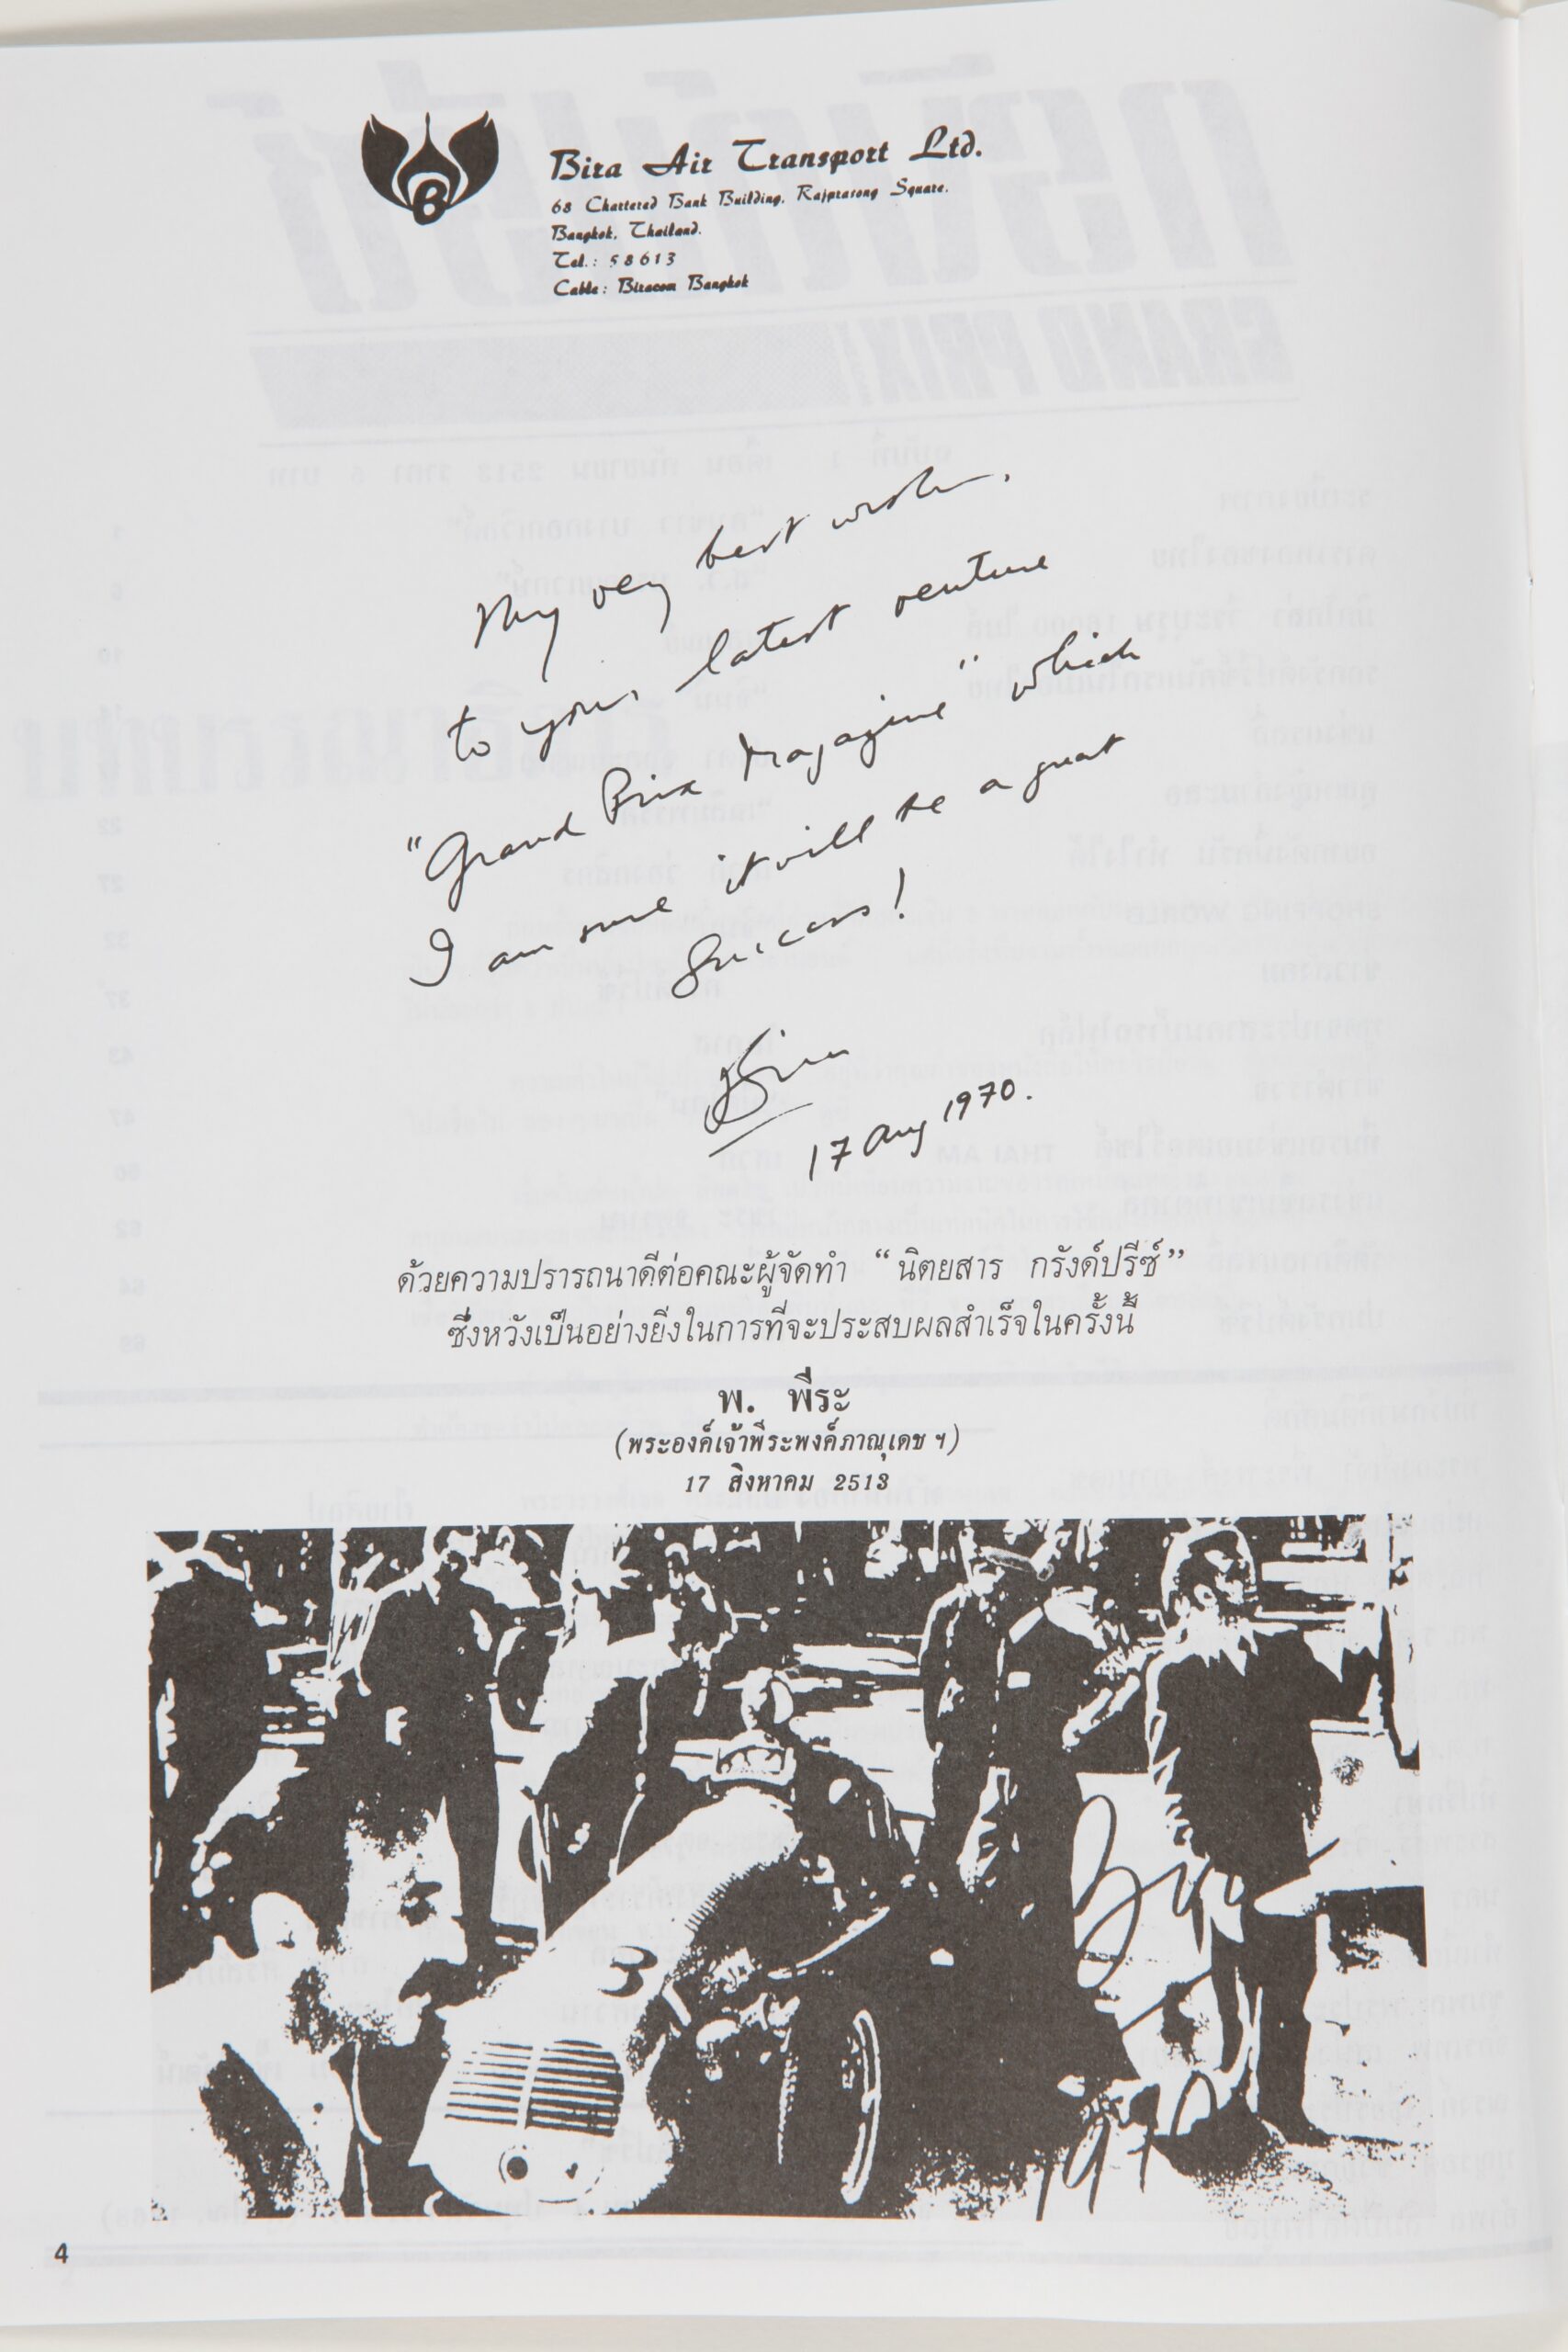 Bira Air Transport Ltd.
68 Chartered Bank Building, Rajprasong Square.
Bangkok, Thailand.
Tel.: 58613
Cable: Biracom Bangkok
My very best wishes.
to your latest venture
"Grand Prix Magazine" which
I am sure it will be a great
Success!
Bira
17 Aug 1970.
ด้วยความปรารถนาดีต่อคณะผู้จัดทำ “นิตยสาร กรังด์ปรีซ์”
ซึ่งหวังเป็นอย่างยิ่งในการที่จะประสบผลสำเร็จในครั้งนี้
พ. พีระ
(พระองค์เจ้าพีระพงค์ภาณุเดช ฯ)
17 สิงหาคม 2513
B
3
Bira
1970
4